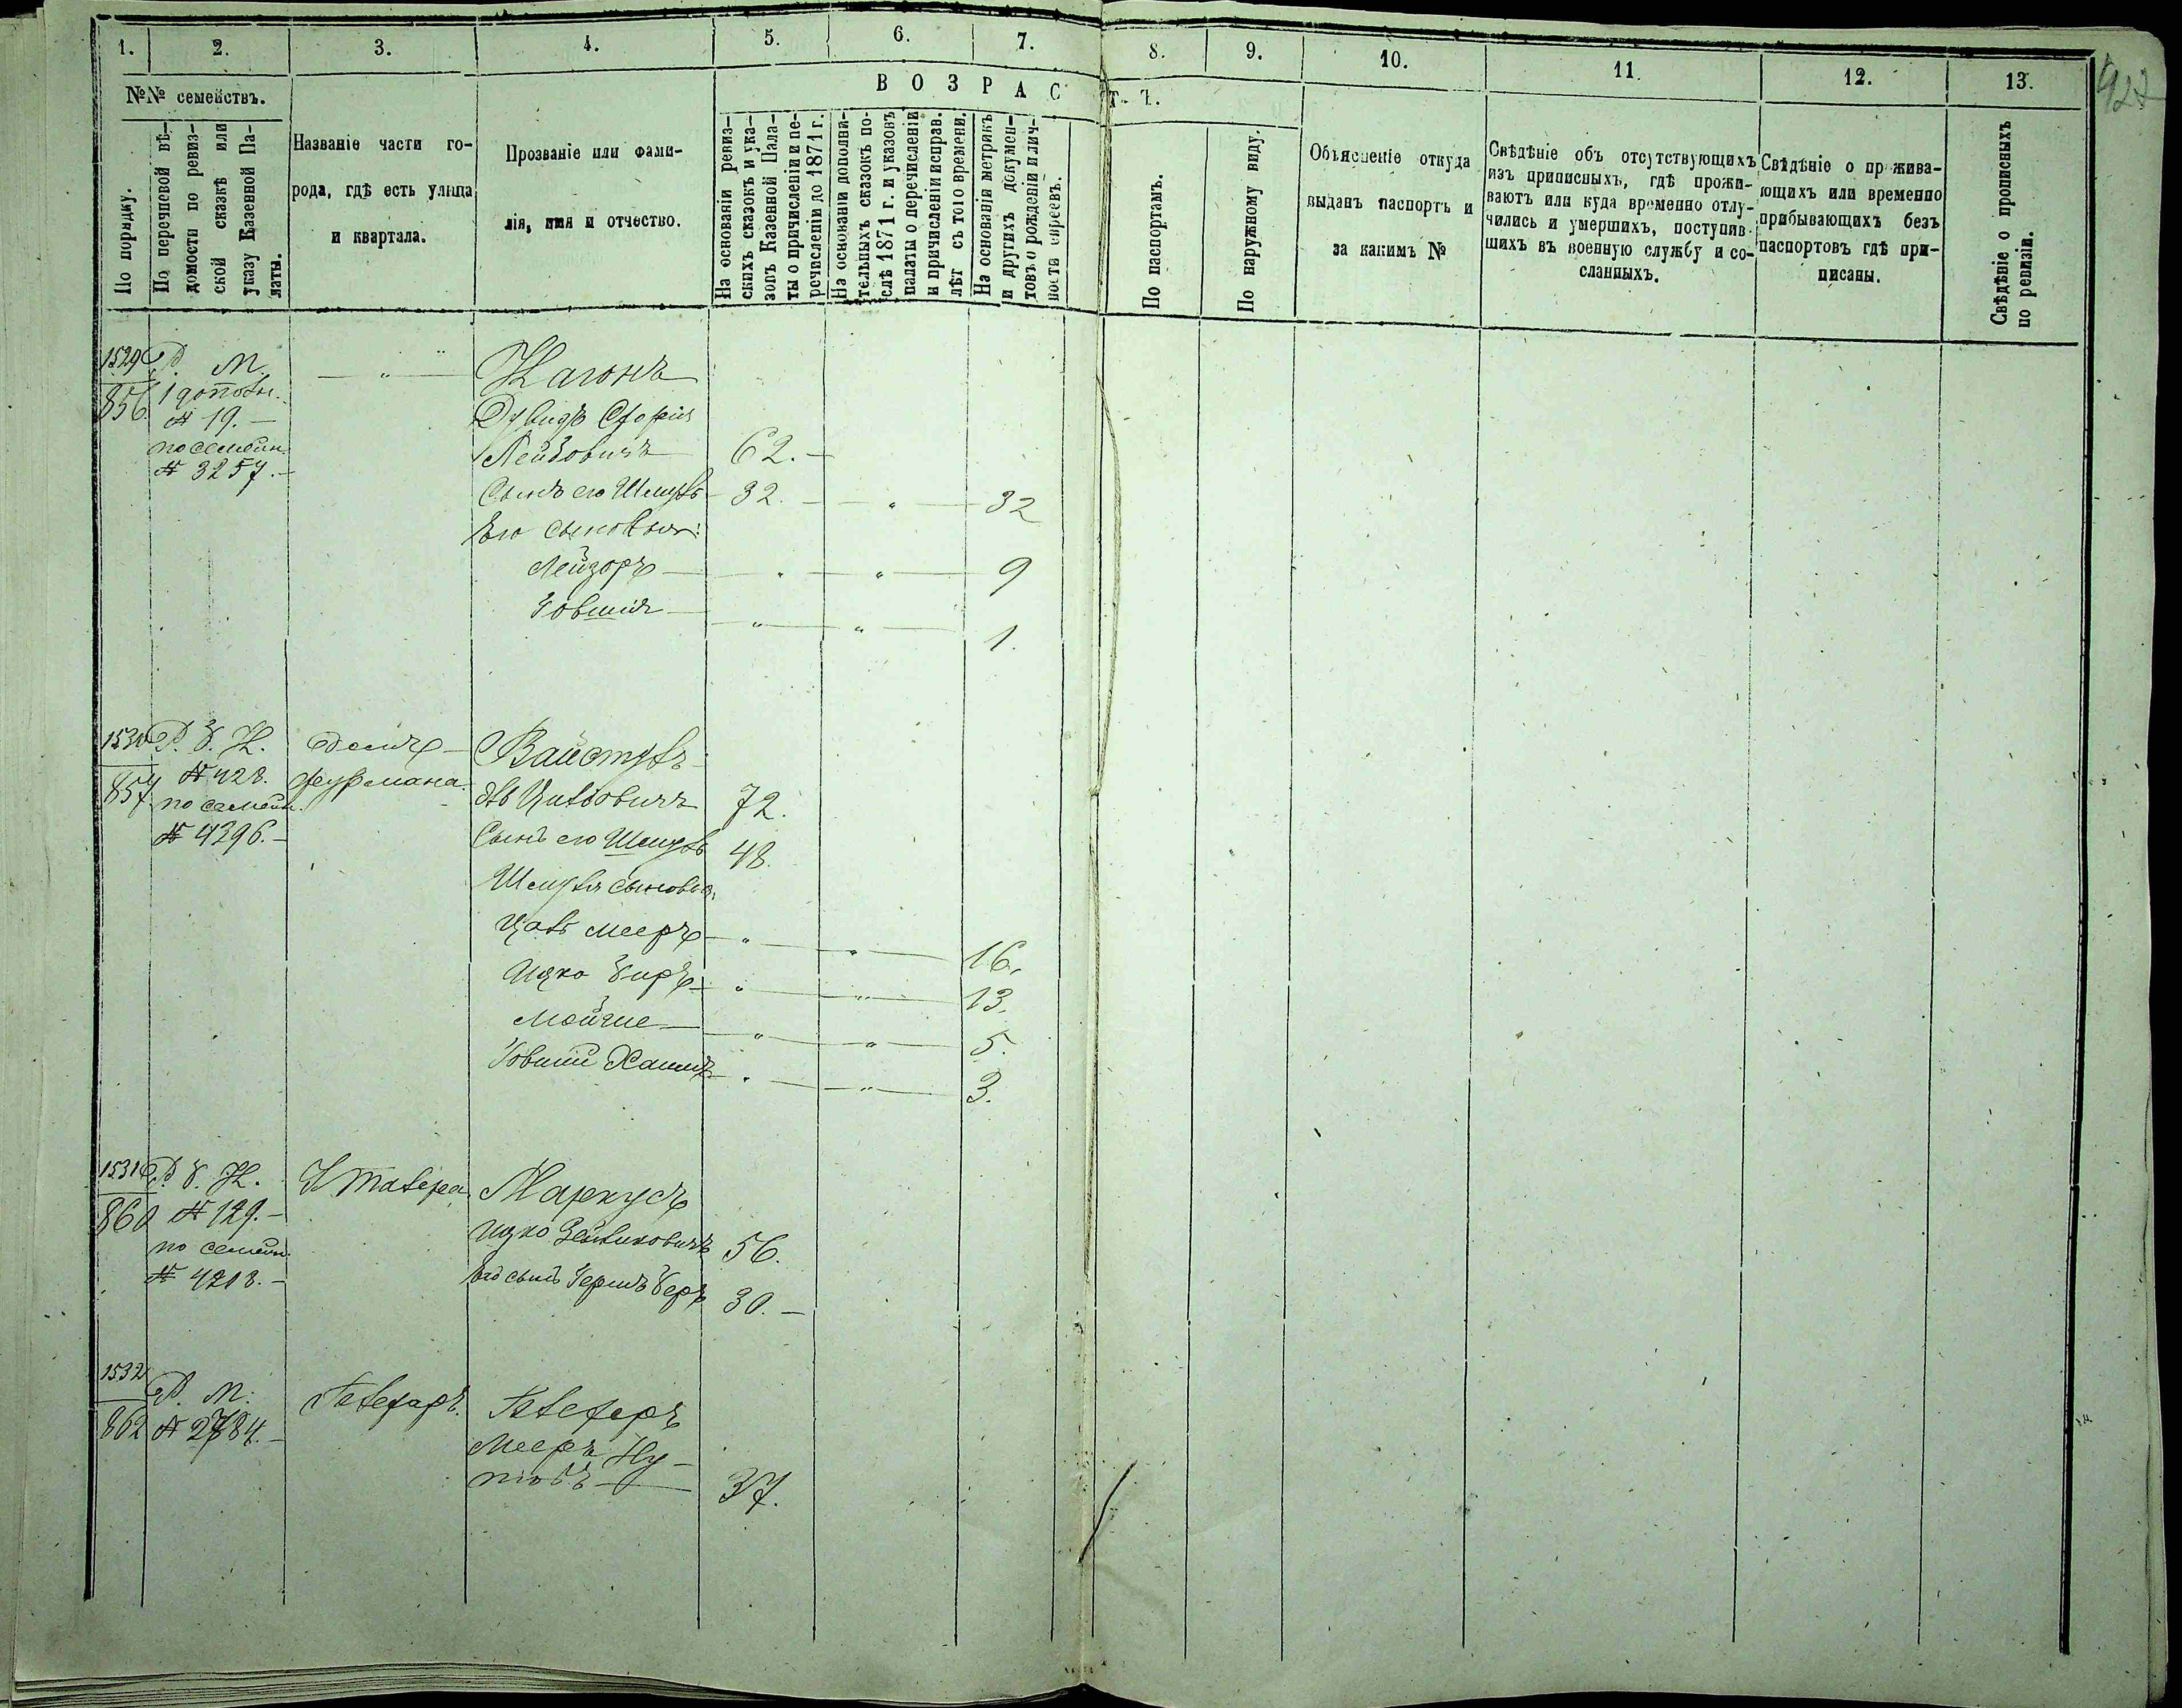 1. 2. 3. 4. 5. 6. 7. 8. 9. 10. 11. 12. 13.
422
№№ семействъ.
В О З Р А С Т Ъ.
По порядку.
По перечневой вѣ-
домости по ревиз-
ской сказкѣ или
указу Казенной Па-
латы.
Названіе части го-
рода, гдѣ есть улица
и квартала.
Прозваніе или фами-
лія, имя и отчество.
На основаніи ревиз-
скихъ сказокъ и ука-
зовъ Казенной Пала-
ты о причисленіи и пе-
речисленіи до 1871 г.
На основаніи дополни-
тельныхъ сказокъ по-
слѣ 1871 г. и указовъ
палаты о перечисленіи
и причисленіи исправ.
лѣт съ того времени.
На основаніи метрикъ
и другихъ докумен-
товъ о рожденіи и лич-
ности евреевъ.
По паспортамъ.
По наружному виду.
Объясненіе откуда
выданъ паспортъ и
за какимъ №
Свѣдѣніе объ отсутствующихъ
изъ приписныхъ, гдѣ прожи-
ваютъ или куда временно отлу-
чились и умершихъ, поступив-
шихъ въ военную службу и со-
сланныхъ.
Свѣдѣніе о прожива-
ющихъ или временно
прибывающихъ безъ
паспортовъ гдѣ при-
писаны.
Свѣдѣніе о прописныхъ
по ревизіи.
1529 Р. М. — " — Каганъ
856 1 дополн.
№ 19.— Дувидъ
по семейн. Лейбовичъ 62.—
№ 3257.— Сынъ его Шмуль 32. — " — 32
Его сыновья:
Лейзоръ — " — " — 9
Іовшія — " — " — 1.
1530 Р. Б. К. домъ Вайстубъ
857 № 428. Фурмана Ицковичъ 72.
по семейн.
№ 4396.— Сынъ его Шмуль 48.
Шмуля сыновья:
Мееръ — " — " — 16.
Ицко Беръ — " — " — 13.
Мойше — " — " — 5.
Іовшій Хаимъ — " — " — 3.
1531 Р. Б. К. Маркусъ
860 № 129.—
по семейн. Ицко Зейликовичъ 56.
№ 4218.— Его сынъ Гершъ Беръ 30.—
1532
Р. М.
862 № 2784.—
Мееръ Ну-
37.